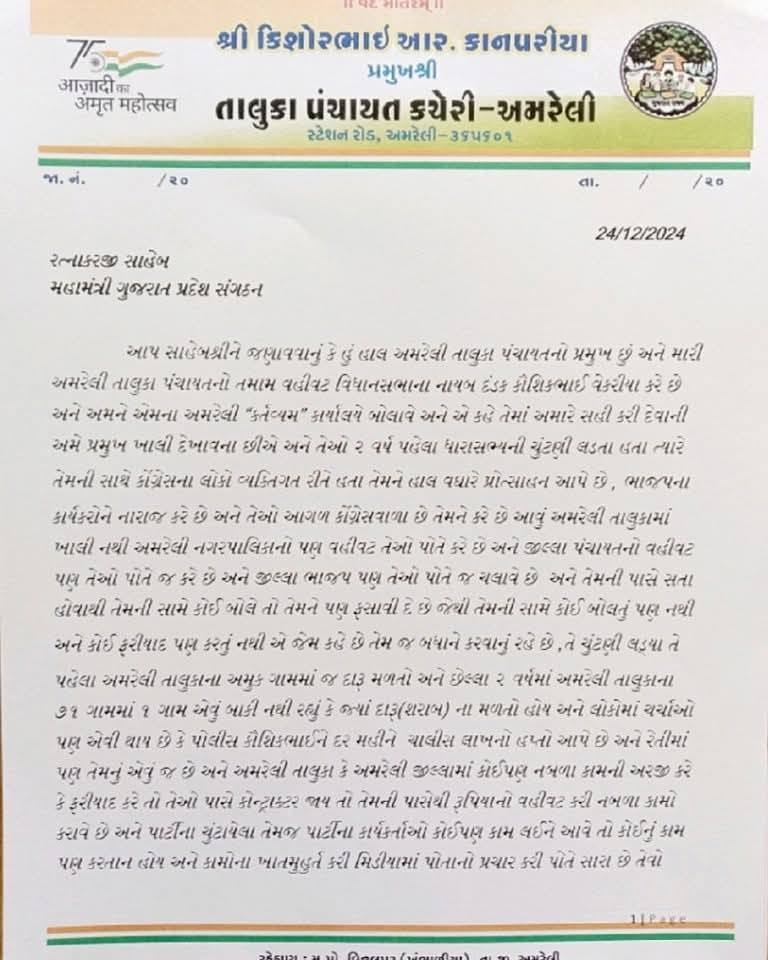 ॥ વંદે માતરમ્ ॥
શ્રી કિશોરભાઇ આર. કાનપરીયા
પ્રમુખશ્રી
તાલુકા પંચાયત કચેરી-અમરેલી
સ્ટેશન રોડ, અમરેલી-૩૬૫૬૦૧
75
આઝાદી કા
અમૃત મહોત્સવ
જા. નં. /૨૦
તા. / /૨૦
24/12/2024
રત્નાકરજી સાહેબ
મહામંત્રી ગુજરાત પ્રદેશ સંગઠન
આપ સાહેબશ્રીને જણાવવાનું કે હું હાલ અમરેલી તાલુકા પંચાયતનો પ્રમુખ છું અને મારી
અમરેલી તાલુકા પંચાયતનો તમામ વહીવટ વિધાનસભાના નાયબ દંડક કૌશિકભાઈ વેકરીયા કરે છે
અને અમને એમના અમરેલી "કર્તવ્યમ" કાર્યાલયે બોલાવે અને એ કહે તેમાં અમારે સહી કરી દેવાની
અમે પ્રમુખ ખાલી દેખાવના છીએ અને તેઓ ૨ વર્ષ પહેલા ધારાસભ્યની ચુંટણી લડતા હતા ત્યારે
તેમની સાથે કોંગ્રેસના લોકો વ્યક્તિગત રીતે હતા તેમને હાલ વધારે પ્રોત્સાહન આપે છે , ભાજપના
કાર્યકરોને નારાજ કરે છે અને તેઓ આગળ કોંગ્રેસવાળા છે તેમને કરે છે આવું અમરેલી તાલુકામાં
ખાલી નથી અમરેલી નગરપાલિકાનો પણ વહીવટ તેઓ પોતે કરે છે અને જીલ્લા પંચાયતનો વહીવટ
પણ તેઓ પોતે જ કરે છે અને જીલ્લા ભાજપ પણ તેઓ પોતે જ ચલાવે છે અને તેમની પાસે સતા
હોવાથી તેમની સામે કોઈ બોલે તો તેમને પણ ફસાવી દે છે જેથી તેમની સામે કોઈ બોલતું પણ નથી
અને કોઈ ફરીયાદ પણ કરતું નથી એ જેમ કહે છે તેમ જ બધાને કરવાનું રહે છે ,તે ચુંટણી લડ્યા તે
પહેલા અમરેલી તાલુકાના અમુક ગામમાં જ દારૂ મળતો અને છેલ્લા ૨ વર્ષમાં અમરેલી તાલુકાના
૭૧ ગામમાં ૧ ગામ એવું બાકી નથી રહ્યું કે જ્યાં દારૂ(શરાબ) ના મળતો હોય અને લોકોમાં ચર્ચાઓ
પણ એવી થાય છે કે પોલીસ કૌશિકભાઈને દર મહીને ચાલીસ લાખનો હપ્તો આપે છે અને રેતીમાં
પણ તેમનું એવું જ છે અને અમરેલી તાલુકા કે અમરેલી જીલ્લામાં કોઈપણ નબળા કામની અરજી કરે
કે ફરીયાદ કરે તો તેઓ પાસે કોન્ટ્રાક્ટર જાય તો તેમની પાસેથી રૂપિયાનો વહીવટ કરી નબળા કામો
કરાવે છે અને પાર્ટીના ચુંટાયેલા તેમજ પાર્ટીના કાર્યકર્તાઓ કોઈપણ કામ લઈને આવે તો કોઈનું કામ
પણ કરતાન હોય અને કામોના ખાતમુહુર્ત કરી મિડીયામાં પોતાનો પ્રચાર કરી પોતે સારા છે તેવો
1 | Page